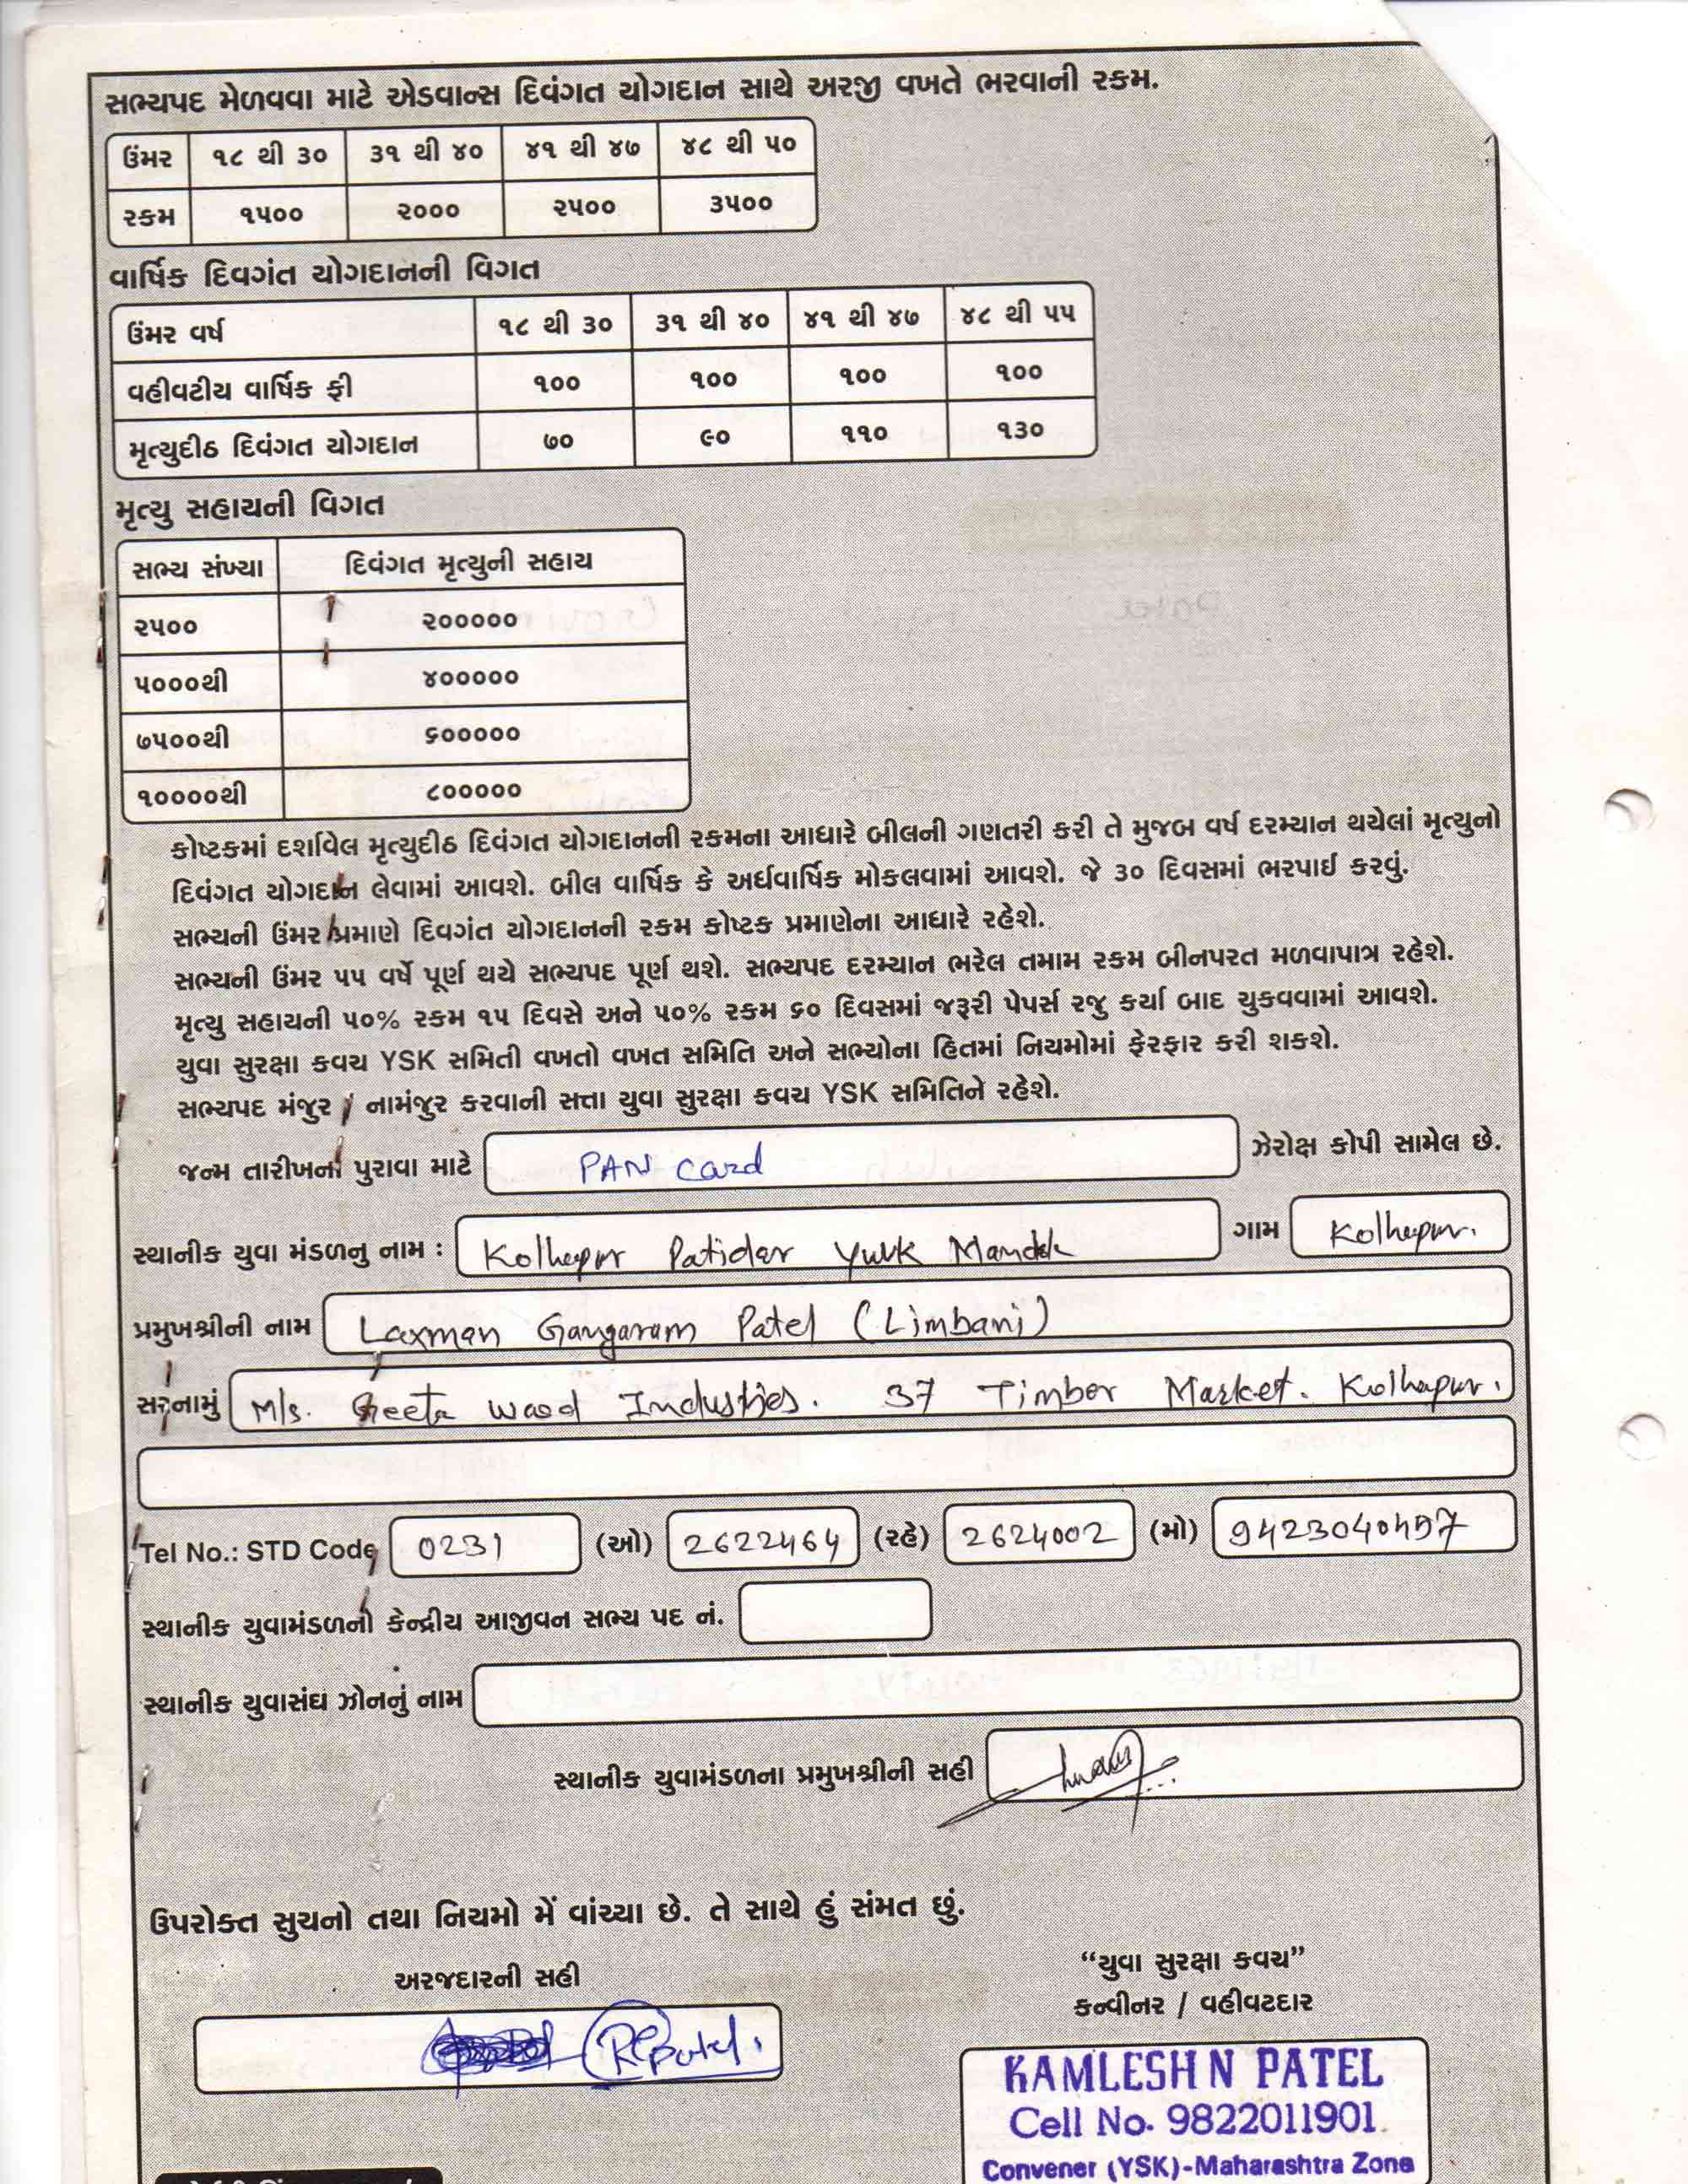 સભ્યપદ મેળવવા માટે એડવાન્સ દિવંગત યોગદાન સાથે અરજી વખતે ભરવાની રકમ.
ઉંમર ૧૮ થી ૩૦ ૩૧ થી ૪૦ ૪૧ થી ૪૭ ૪૮ થી ૫૦
રકમ ૧૫૦૦ ૨૦૦૦ ૨૫૦૦ ૩૫૦૦
વાર્ષિક દિવગંત યોગદાનની વિગત
ઉંમર વર્ષ ૧૮ થી ૩૦ ૩૧ થી ૪૦ ૪૧ થી ૪૭ ૪૮ થી ૫૫
વહીવટીય વાર્ષિક ફી ૧૦૦ ૧૦૦ ૧૦૦ ૧૦૦
મૃત્યુદીઠ દિવંગત યોગદાન ૭૦ ૯૦ ૧૧૦ ૧૩૦
મૃત્યુ સહાયની વિગત
સભ્ય સંખ્યા દિવંગત મૃત્યુની સહાય
૨૫૦૦ ૨૦૦૦૦૦
૫૦૦૦થી ૪૦૦૦૦૦
૭૫૦૦થી ૬૦૦૦૦૦
૧૦૦૦૦થી ૮૦૦૦૦૦
કોષ્ટકમાં દર્શાવેલ મૃત્યુદીઠ દિવંગત યોગદાનની રકમના આધારે બીલની ગણતરી કરી તે મુજબ વર્ષ દરમ્યાન થયેલાં મૃત્યુનો
દિવંગત યોગદાન લેવામાં આવશે. બીલ વાર્ષિક કે અર્ધવાર્ષિક મોકલવામાં આવશે. જે ૩૦ દિવસમાં ભરપાઈ કરવું.
સભ્યની ઉંમર પ્રમાણે દિવગંત યોગદાનની રકમ કોષ્ટક પ્રમાણેના આધારે રહેશે.
સભ્યની ઉંમર ૫૫ વર્ષે પૂર્ણ થયે સભ્યપદ પૂર્ણ થશે. સભ્યપદ દરમ્યાન ભરેલ તમામ રકમ બીનપરત મળવાપાત્ર રહેશે.
મૃત્યુ સહાયની ૫૦% રકમ ૧૫ દિવસે અને ૫૦% રકમ ૬૦ દિવસમાં જરૂરી પેપર્સ રજુ કર્યા બાદ ચુકવવામાં આવશે.
યુવા સુરક્ષા કવચ YSK સમિતી વખતો વખત સમિતિ અને સભ્યોના હિતમાં નિયમોમાં ફેરફાર કરી શકશે.
સભ્યપદ મંજુર / નામંજુર કરવાની સત્તા યુવા સુરક્ષા કવચ YSK સમિતિને રહેશે.
જન્મ તારીખનાં પુરાવા માટે PAN Card ઝેરોક્ષ કોપી સામેલ છે.
સ્થાનીક યુવા મંડળનુ નામ : Kolhapur Patidar Yuvk Mandal ગામ Kolhapur.
પ્રમુખશ્રીની નામ Laxman Gangaram Patel (Limbani)
સરનામું M/s. Geeta Wood Industries. 37 Timber Market. Kolhapur.
Tel No.: STD Code 0231 (ઓ) 2622464 (રહે) 2624002 (મો) 9423040497
સ્થાનીક યુવામંડળનો કેન્દ્રીય આજીવન સભ્ય પદ નં.
સ્થાનીક યુવાસંઘ ઝોનનું નામ
સ્થાનીક યુવામંડળના પ્રમુખશ્રીની સહી
ઉપરોક્ત સુચનો તથા નિયમો મેં વાંચ્યા છે. તે સાથે હું સંમત છું.
અરજદારની સહી
"યુવા સુરક્ષા કવચ"
કન્વીનર / વહીવટદાર
RPatel.
KAMLESH N PATEL
Cell No. 9822011901
Convener (YSK)-Maharashtra Zone